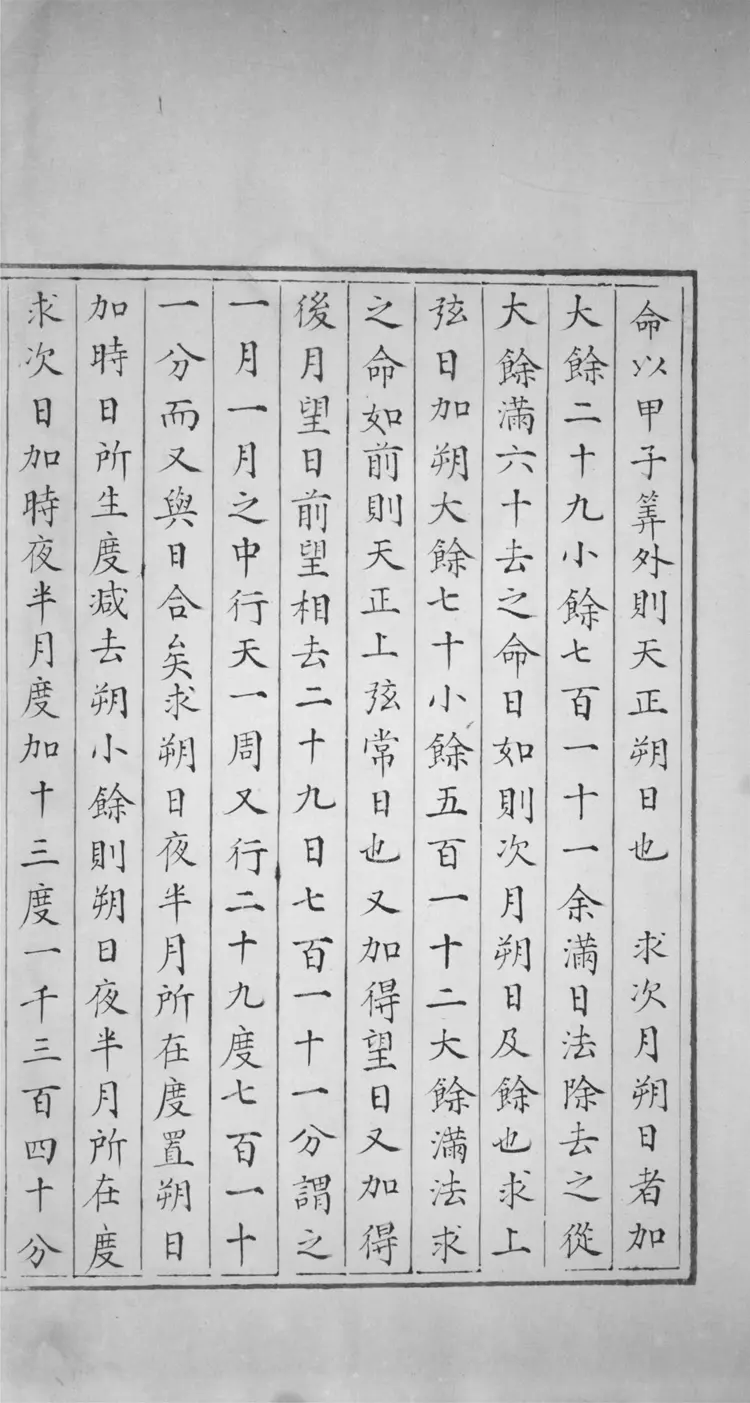 命以甲子筭外則天正朔日也　求次月朔日者加
大餘二十九小餘七百一十一余滿日法除去之從
大餘滿六十去之命日如則次月朔日及餘也求上
弦日加朔大餘七十小餘五百一十二大餘滿法求
之命如前則天正上弦常日也又加得望日又加得
後月望日前望相去二十九日七百一十一分謂之
一月一月之中行天一周又行二十九度七百一十
一分而又與日合矣求朔日夜半月所在度置朔日
加時日所生度減去朔小餘則朔日夜半月所在度
求次日加時夜半月度加十三度一千三百四十分